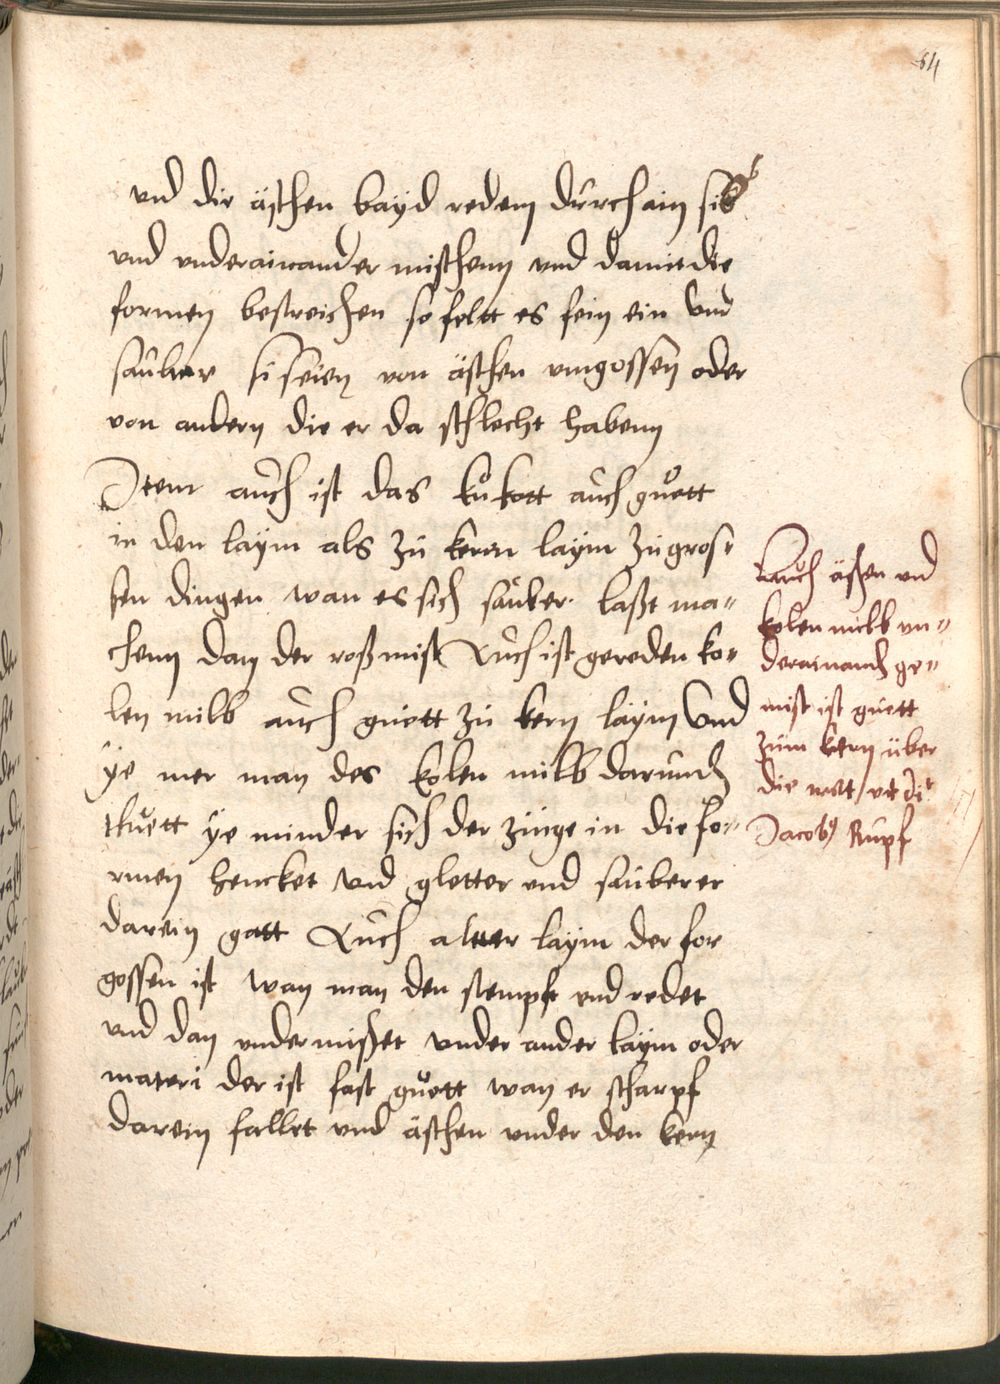 64
und die äschen bayd redenn durch ain sib
und underainander mischenn und damit die
formen bestreichen so felt es fein ein und
sauber si seien von äschen umgossen oder
von andern die er da schlecht habenn
Item auch ist das kůkott auch gůett
in den laym als zu keren laym zu gros-
sen dingen wan es sich sauber laßt ma-
chenn dan der roßmist Auch ist gereden ko-
len milb auch guett zu kern laym Und
ye mer man des kolen milb darund
thuett ye minder sich der zinge in die fo-
rmen hencket und gletter und sauberer
darein gatt Auch alter laym der for
gossen ist wan man den stempft und redet
und dan undermischet under ander laym oder
materi der ist fast gůett wan er scharpf
darein fallet und äschen under den kern
Auch äschen und
kolen milb un-
derainand ge-
mist ist guett
zum kern über
die mat ut di^t
Jacob9 Rupf